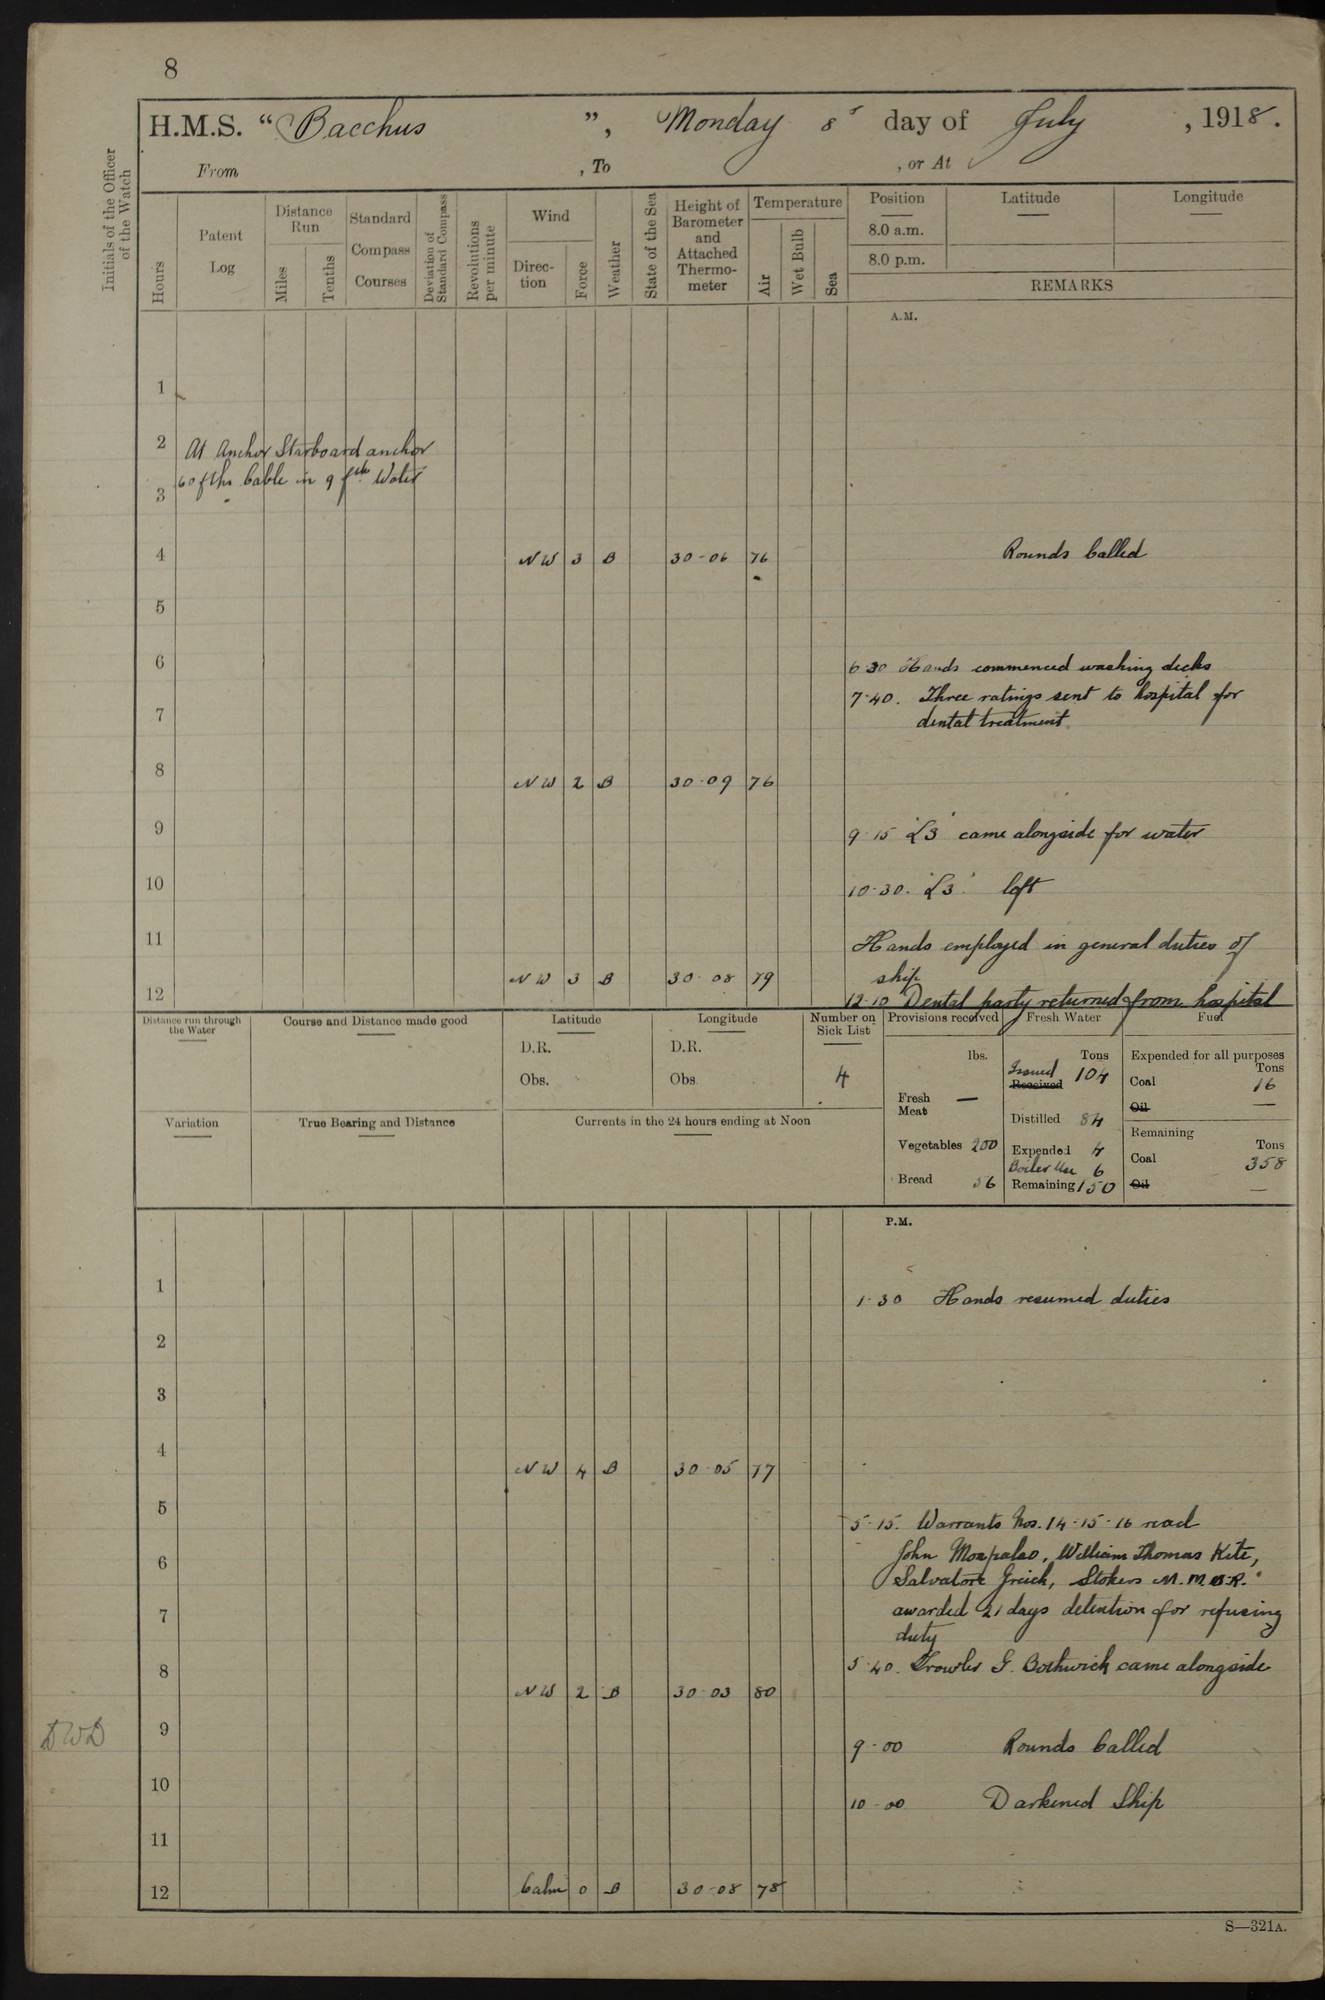 8
H.M.S. “Bacchus ”, Monday 8 day of July , 1918.
From , To , or At
Initials of the Officer
of the Watch
Hours
Patent
Log
Distance
Run
Miles
Tenths
Standard
Compass
Courses
Deviation of
Standard Compass
Revolutions
per minute
Wind
Direc-
tion
Force
Weather
State of the Sea
Height of
Barometer
and
Attached
Thermo-
meter
Temperature
Air
Wet Bulb
Sea
Position
8.0 a.m.
8.0 p.m.
Latitude
Longitude
REMARKS
A.M.
1
2 At Anchor Starboard anchor
60 fths Cable in 9 fths Water
3
4 NW 3 B 30-06 76 Rounds Called
5
6
6 30 Hands commenced washing decks
7-40. Three ratings sent to hospital for
7
dental treatment.
8 NW 2 B 30-09 76
9
9-15 'L3' came alongside for water
10
10-30. 'L3' left
11
Hands employed in general duties of
ship
12 NW 3 B 30-08 79
12-10 Dental party returned from hospital
Distance run through
the Water
Course and Distance made good
Latitude
D.R.
Obs.
Longitude
D.R.
Obs.
Number on
Sick List
4
Variation
True Bearing and Distance
Currents in the 24 hours ending at Noon
Provisions received
lbs.
Fresh
Meat —
Vegetables 200
Bread 56
Fresh Water
Tons
Issued
Received 104
Distilled 84
Expended 4
Boiler Use 6
Remaining 150
Fuel
Expended for all purposes
Tons
Coal 16
Oil —
Remaining
Tons
Coal 358
Oil —
P.M.
1
1-30 Hands resumed duties
2
3
4 NW 4 B 30-05 77
5
5-15. Warrants Nos. 14-15-16 read
John Mospalao, William Thomas Kite,
6
Salvatore Greich, Stokers M.M.R.
7 awarded 21 days detention for refusing
duty
5-40. Trawler G. Borthwick came alongside
8 NW 2 B 30-03 80
DWD
9
9-00 Rounds Called
10
10-00 Darkened Ship
11
12 Calm 0 B 30-08 78
S—321A.